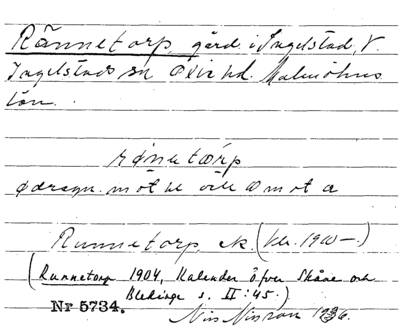 Rännetorp, gård i Ingelstad, V.
Ingelstads sn Oxie hd. Malmöhus
län.
rönetorp
Runnetorp, ek. (bl. 1900-.)
(Runnetorp 1904, Kalender öfver Skåne och
Blekinge s. II:45.)
Nr 5734. Nils Nilsson 1936.